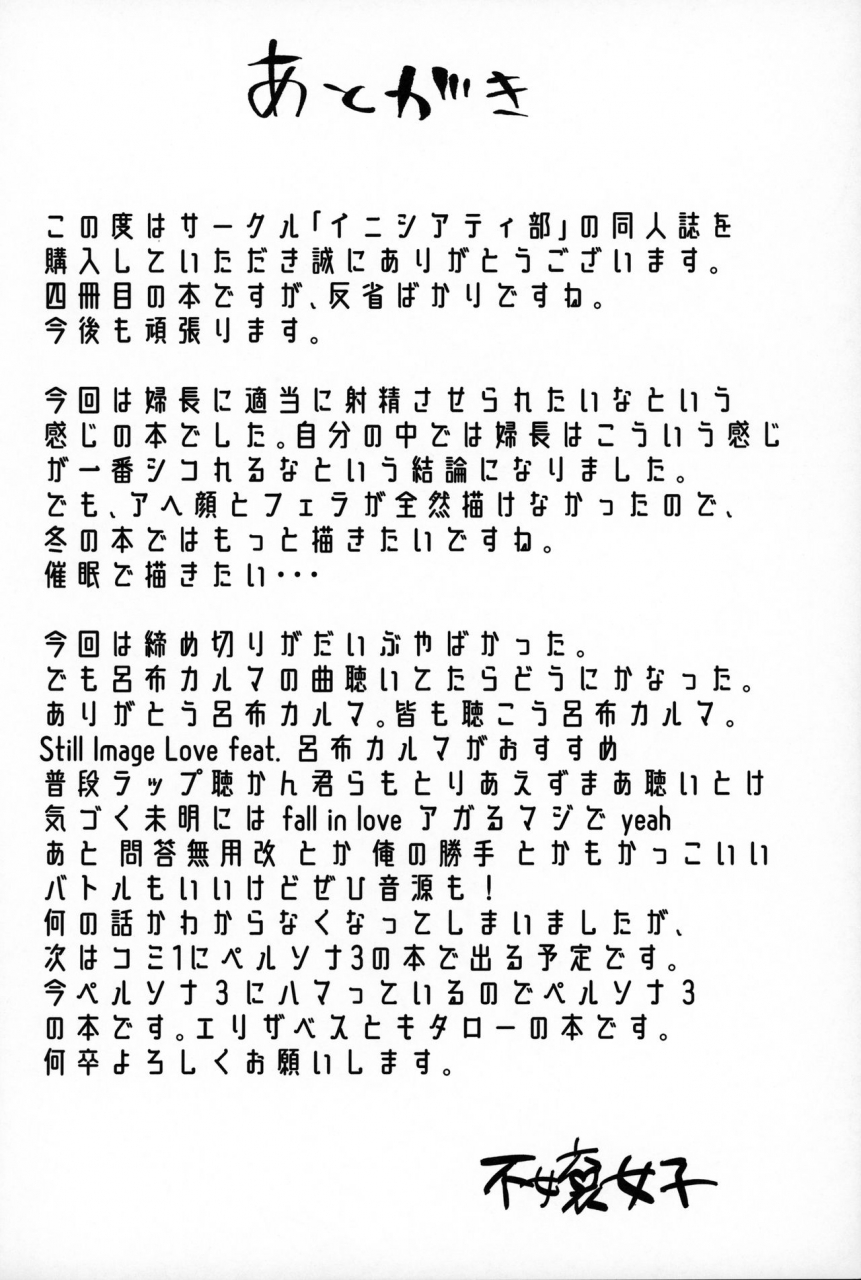 あとがき
この度はサークル「イニシアティ部」の同人誌を
購入していただき誠にありがとうございます。
四冊目の本ですが、反省ばかりですね。
今後も頑張ります。
今回は婦長に適当に射精させられたいなという
感じの本でした。自分の中では婦長はこういう感じ
が一番シコれるなという結論になりました。
でも、アへ顔とフェラが全然描けなかったので、
冬の本ではもっと描きたいですね。
催眠で描きたい・・・
今回は締め切りがだいぶやばかった。
でも呂布カルマの曲聴いてたらどうにかなった。
ありがとう呂布カルマ。皆も聴こう呂布カルマ。
Still Image Love feat. 呂布カルマがおすすめ
普段ラップ聴かん君らもとりあえずまあ聴いとけ
気づく未明には fall in love アガるマジで yeah
あと 問答無用改 とか 俺の勝手 とかもかっこいい
バトルもいいけどぜひ音源も!
何の話かわからなくなってしまいましたが、
次はコミ1にペルソナ3の本で出る予定です。
今ペルソナ3にハマっているのでペルソナ3
の本です。エリザベスとキタローの本です。
何卒よろしくお願いします。
不嬢女子